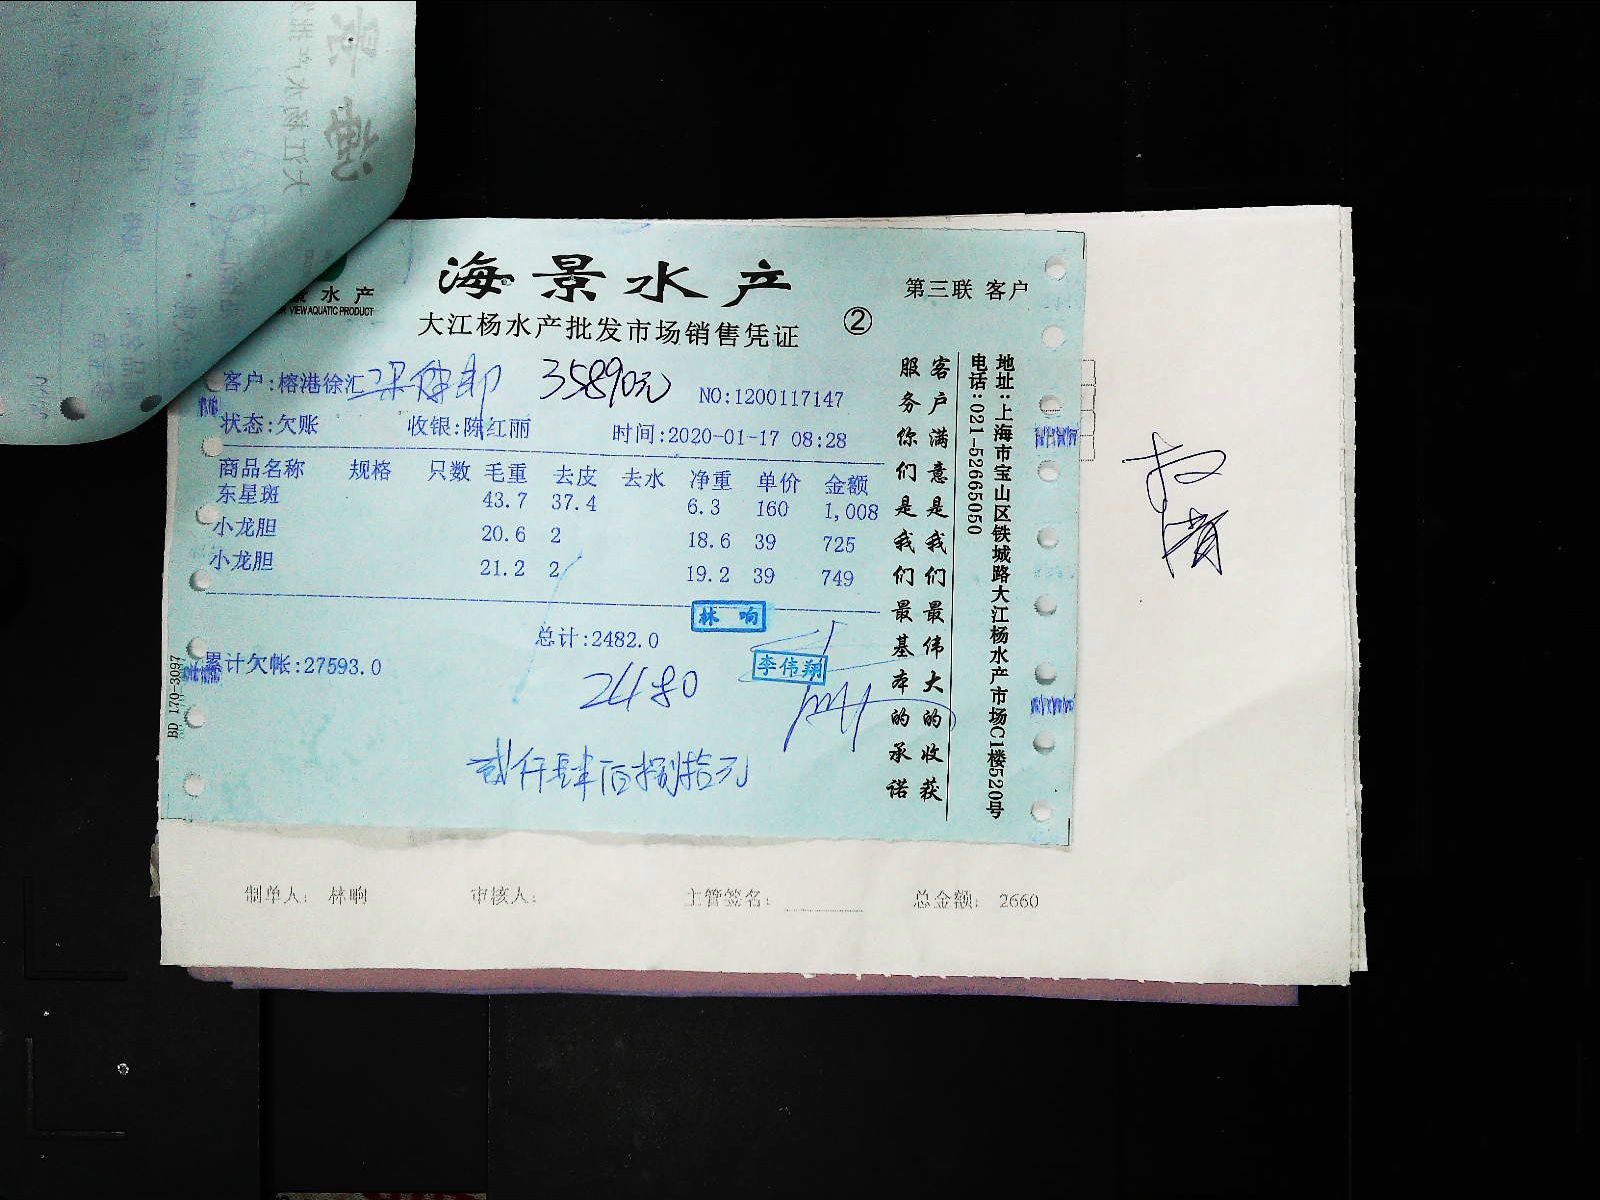 海景水产
第三联 客户
水产
VIEW AQUATIC PRODUCT
大江杨水产批发市场销售凭证 ②
客户:榕港徐汇 35890元 NO:1200117147
状态:欠账 收银:陈红丽 时间:2020-01-17 08:28
商品名称 规格 只数 毛重 去皮 去水 净重 单价 金额
东星斑 43.7 37.4 6.3 160 1,008
小龙胆 20.6 2 18.6 39 725
小龙胆 21.2 2 19.2 39 749
林响
总计:2482.0
李伟翔
累计欠帐:27593.0
2480
贰仟肆百捌拾元
BD 170-3097
客户满意是我们最伟大的收获
服务你们是我们最基本的承诺
地址:上海市宝山区铁城路大江杨水产市场C1楼520号
电话:021-52665050
制单人: 林响 审核人: 主管签名: 总金额: 2660